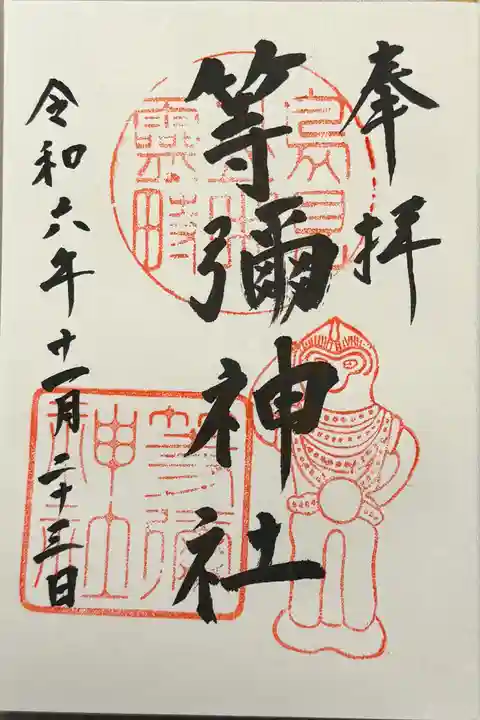 奉拝
等彌神社
令和六年十一月二十三日